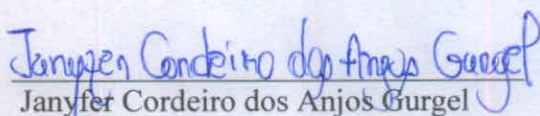 Janyfer Cordeiro dos Anjos Gurgel
Janyfer Cordeiro dos Anjos Gurgel